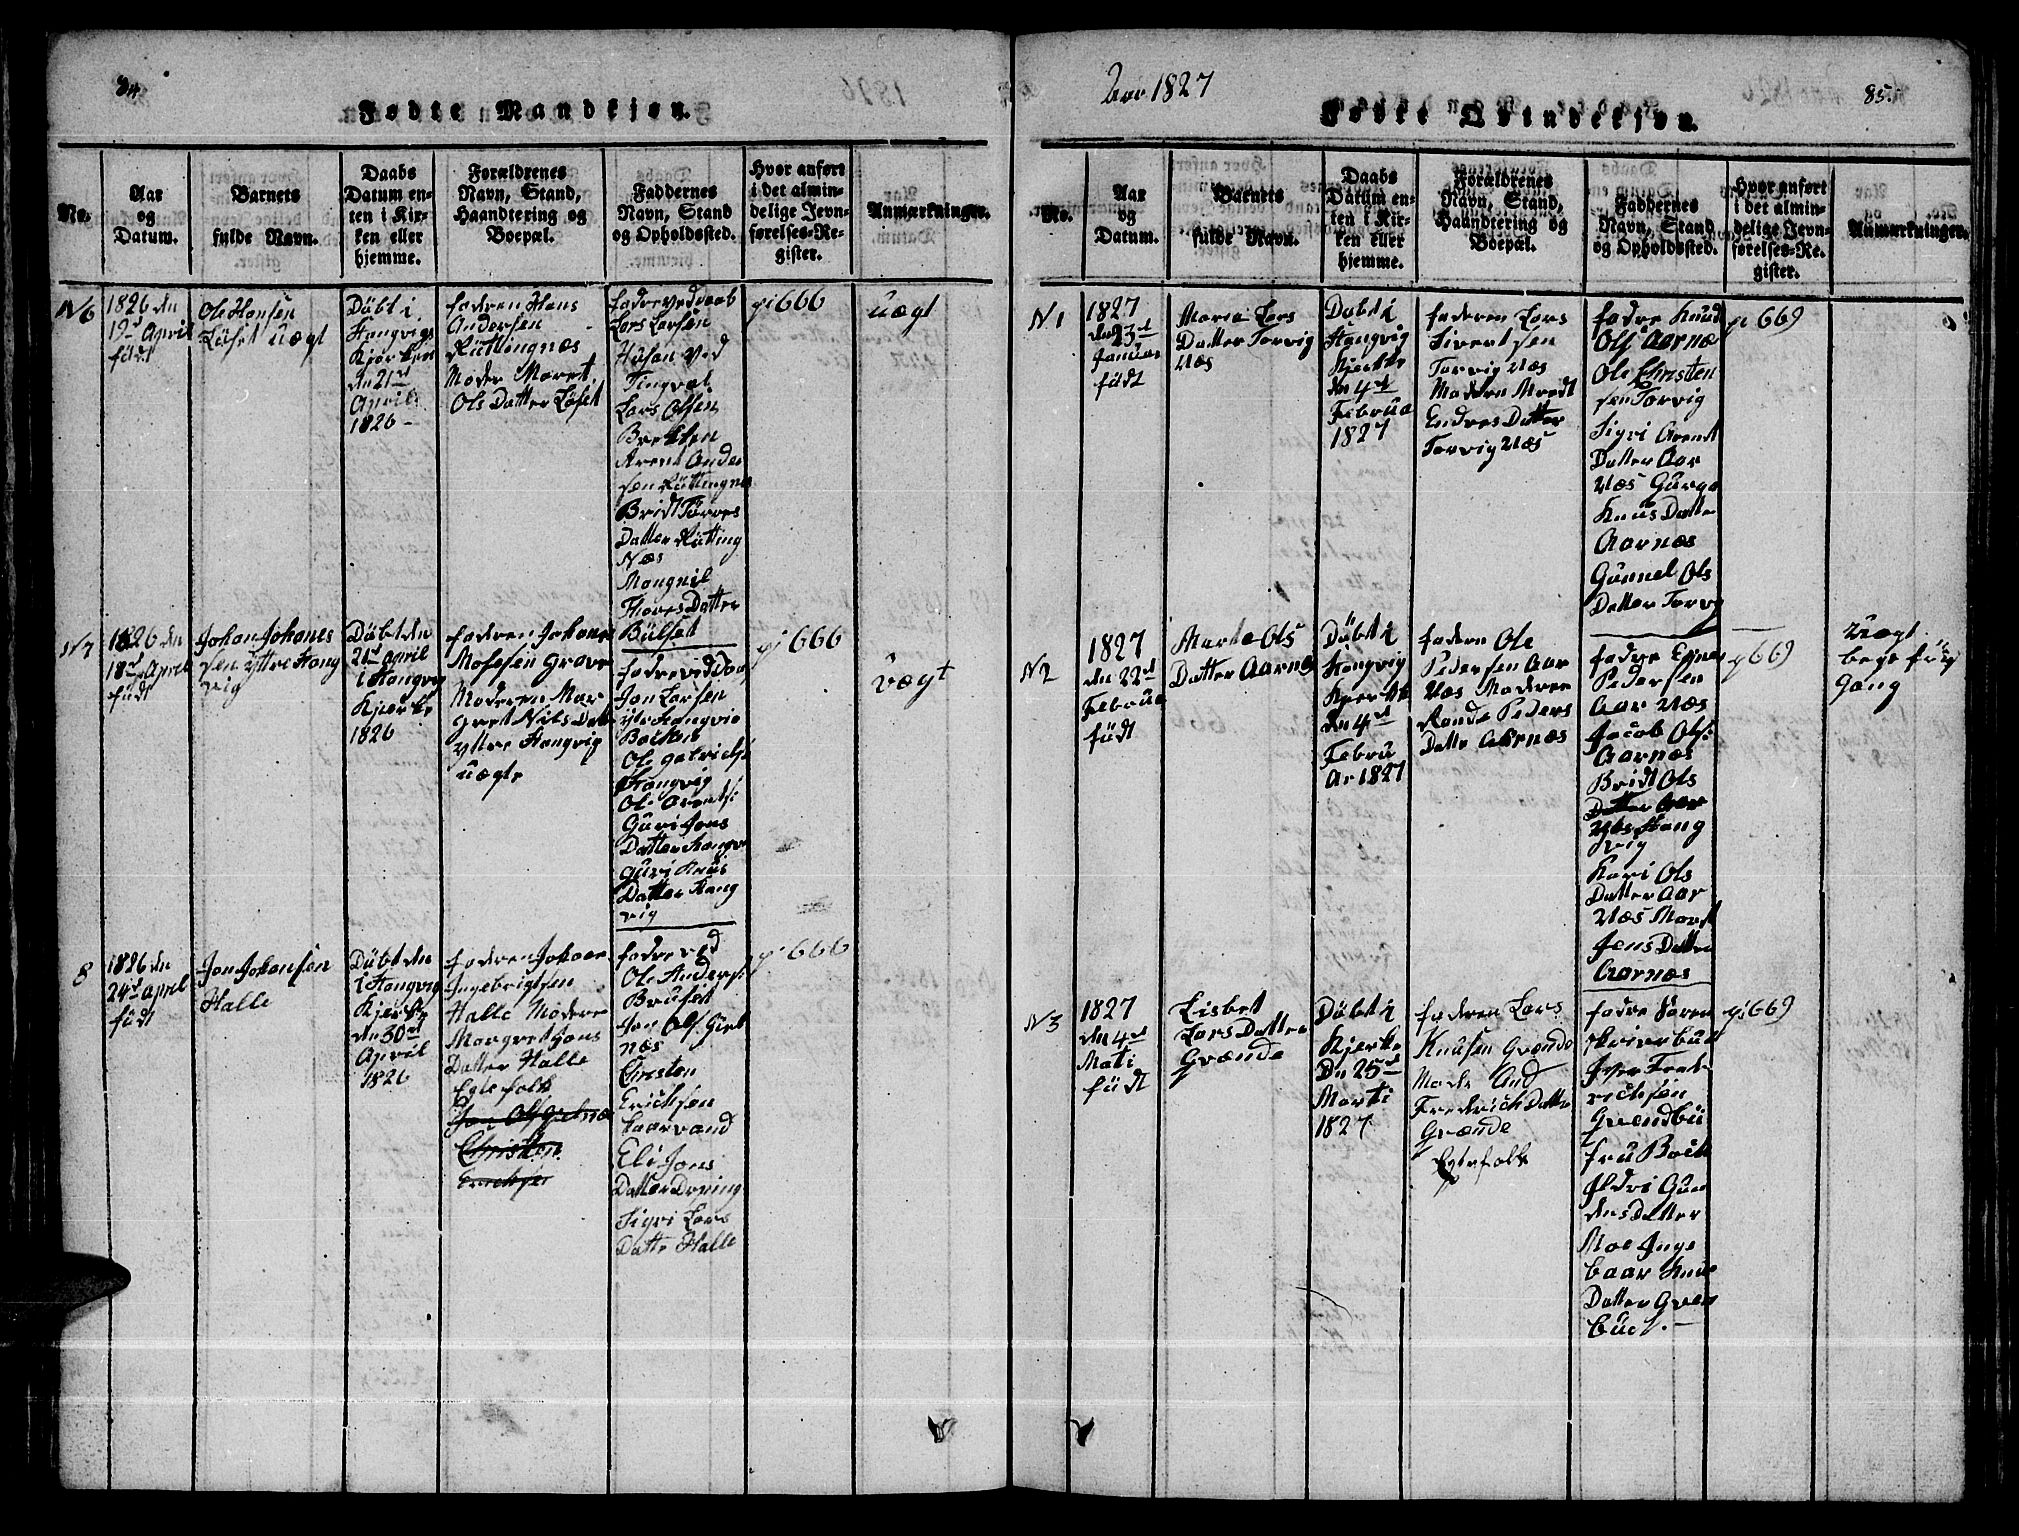 84
Fødte Mandkjøn.
No.
Aar
og
Datum.
Barnets
fulde Navn.
Daabs
Datum en-
ten i Kir-
ken eller
hjemme.
Forældrenes
Navn, Stand,
Haandtering og
Boepæl.
Faddernes
Navn, Stand
og Opholdssted.
Hvor anført
i det almin-
delige Jevn-
førelses-Re-
gister.
Anmærkninger.
N 6
1826 dn
19d April
füdt
Ole Hansen
Löset uægt
Döbt i
Stangvigs
Kjerken
dn 21d
April
1826 -
fadren Hans
Andersen
Rüttingnæs
Moder Maret
Ols Datter Löset
fadre ved daab
Lars Larsen
Husan ved
Tingval
Lars Olsen
Brekken
Arent Ander
sen Rüttingnæs
Bridt Torres
Datter Rütting
Næs
Mangnil
Thores Datter
Bülset
pi 666
uægt
N 7
1826 dn
18d April
füdt
Johan Johanes
sen yttre Stang
vig
Döbt dn
21d April
i Stangvig
Kjerke
1826
fadren Johanes
Mosesen Grave
Moderen Mar
gret Nils Datt
yttre Stangvig
uægte
fadre vid Daa
Jon Larsen
ytr Stangvig
Bakken
Ole
Stangvig
Ole Arents:
Guri Jons
Datter Stangv
guri Knus
Datter Stang
vig
pi 666
vægt
8
1826 dn
24d April
füdt
Jon Johansen
Halle
Döbt dn
i Stangvig
Kjerke
dn 30d
April
1826
fadren Johan
Ingebrigtsen
Halle Modere
Margret Jons
Datter Halle
Egte folk
Jon Ols Gielnæ
Christen
Erichsen
fadre ved
Ole Anders:
Brüset
Jon Ols: Giel
næs
Christen
Erichsen
Haarvand
Eli Jons
Datter Döning
Sigri Lars
Datte Halle
pi 666
Aar 1827
85.
Fødte Qvindekjøn.
No.
Aar
og
Datum.
Barnets
fulde Navn.
Daabs
Datum en-
ten i Kir-
ken eller
hjemme.
Forældrenes
Navn, Stand,
Haandtering og
Boepæl.
Faddernes
Navn, Stand
og Opholdssted.
Hvor anført
i det almin-
delige Jevn-
førelses-Re-
gister.
Anmærkninger.
N 1
1827
dn 23d
Januar
füdt
Maria Lars
Datter Torvig
Næs
Döbt i
Stangvig
Kjerke
dn 4d
Februa
1827
faderen Lars
Sivertsen
Torvig Næs
Modern Mredt
Endres Datter
Torvig Næs
fadre Knud
Ols Aarnæ
Ole Christen
sen Torvig
Sigri Arent
Datter Aar
Næs Gurga
Knus Datte
Aarnæs
Günnel Ols
Datter Torvig
pi 669
N 2
1827
dn 22d
Februa
füdt
Marte Ols
Datter Aarnæ
Döbt i
Stangvig
Kjerke
dn 4d
Febru
Ar 1827
fadern Ole
Pedersen Aar
Næs Moderen
Rande Peders
Datte Aarnæs
fadre Essner
Pedersen
Aar Næs
Jacob Ols:
Aarnæs
Bridt Ols
Datter Aar
Næs Stang
vig
Kari Ols
Datter Aar
Næs Mardt
Jens Datter
Aarnæs
pi 669
Uægt
begefryg
gang
N 3
1827
dn 4d
Mati
füdt
Lisbet
Lars Datter
Grænde
Döbt i
Kjerke
Dn 25d
Marti
1827
fadren Lars
Knusen Grænde
Mode And
Frederich Datte
Grænde
Egtefolk
fadre Søren
skriver bud
Iver Frede
richsen
Grændbü
fru Bock
Ildri Gun
ders Datter
Moe Inge
baar Knus
Datter Græn
büet. —
pi 669